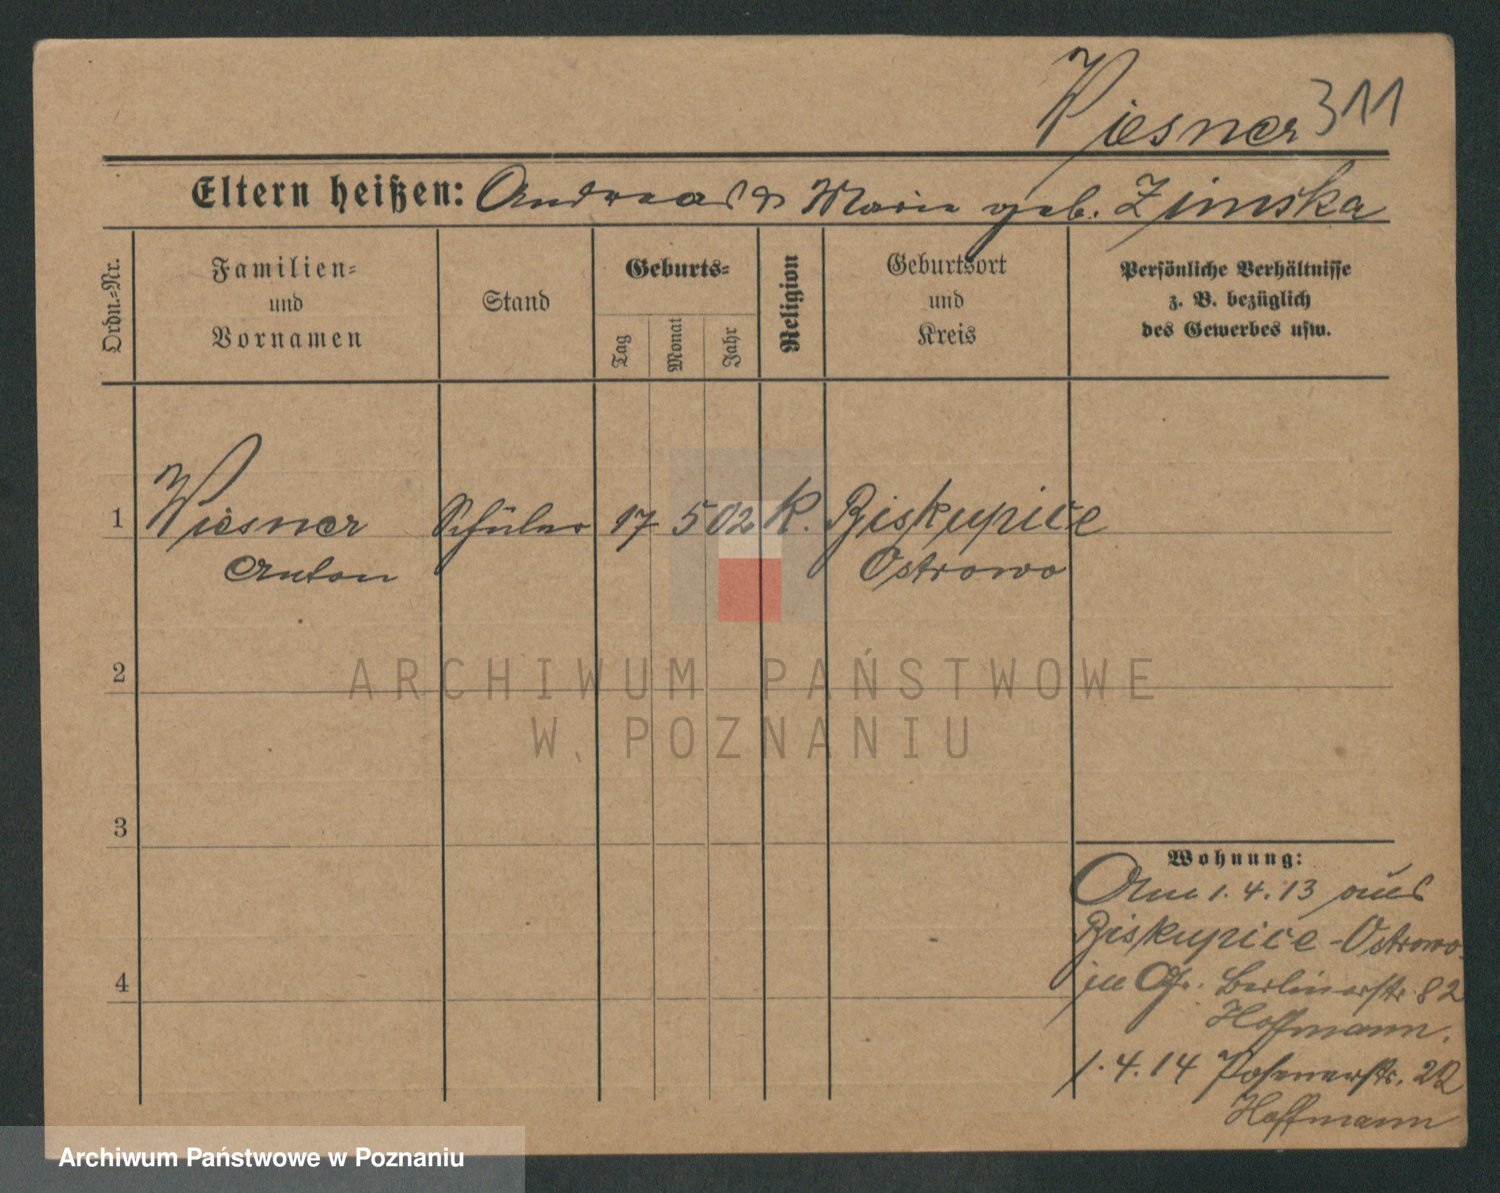 Wiesner 311
Eltern heißen: Andreas & Marie geb. Zimska
Ordn.=Nr.
Familien=
und
Vornamen
Stand
Geburts=
Tag
Monat
Jahr
Religion
Geburtsort
und
Kreis
Persönliche Verhältnisse
z. B. bezüglich
des Gewerbes usw.
1 Wiesner Schüler 17 5 02 K. Biskupice
Anton Ostrowo
2
3
4
Wohnung:
Am 1.4.13 aus
Biskupice-Ostrowo
Berlinerstr. 82
Hoffmann.
1.4.14 Posenerstr. 22
Hoffmann
ARCHIWUM PAŃSTWOWE
W POZNANIU
Archiwum Państwowe w Poznaniu